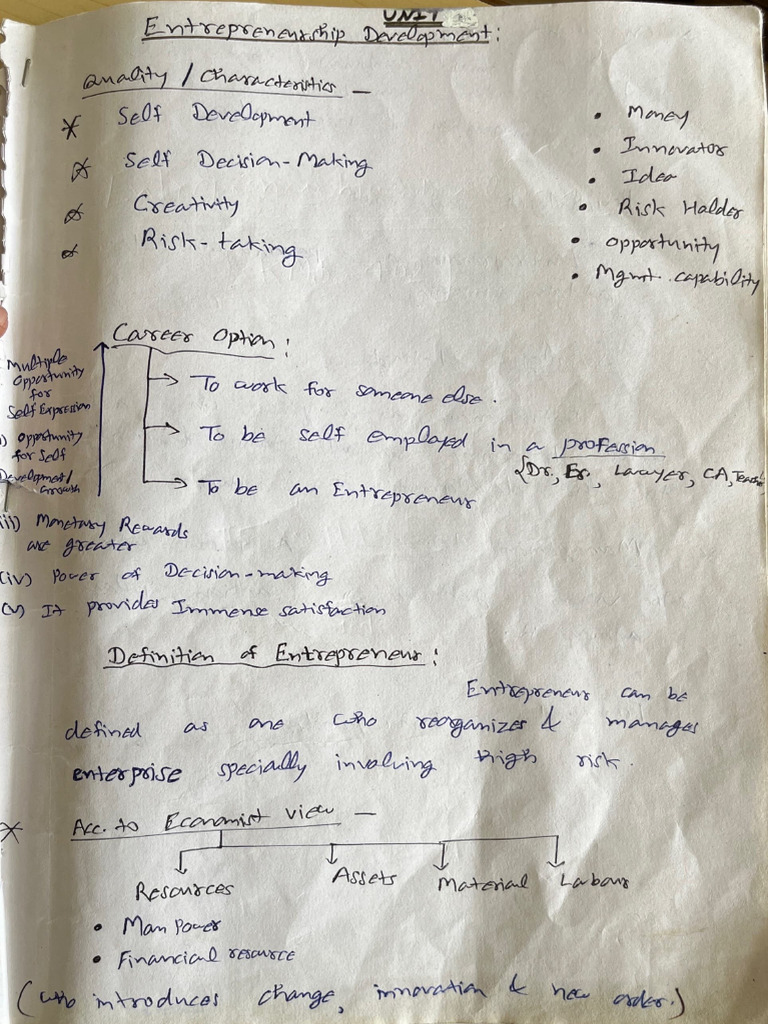 UNIT
Entrepreneurship Development:
Quality / Characteristics —
Self Development
Self Decision-Making
Creativity
Risk-taking
• Money
• Innovator
• Idea
• Risk Holder
• opportunity
• Mgmt. capability
Career Option:
→ To work for someone else.
→ To be self employed in a profession
{Dr, Er, Lawyer, CA, Teacher
→ To be an Entrepreneur
Multiple
Opportunity
for
Self Expression
) opportunity
for Self
Development/
Growth
iii) Monetary Rewards
are greater
(iv) Power of Decision-making
(v) It provides Immense satisfaction
Definition of Entrepreneur:
Entrepreneur can be
defined as one who reorganizes & manages
enterprise specially involving high risk.
Acc. to Economist view —
Resources Assets Material Labour
• Man Power
• Financial resource
(who introduces change, innovation & new order.)